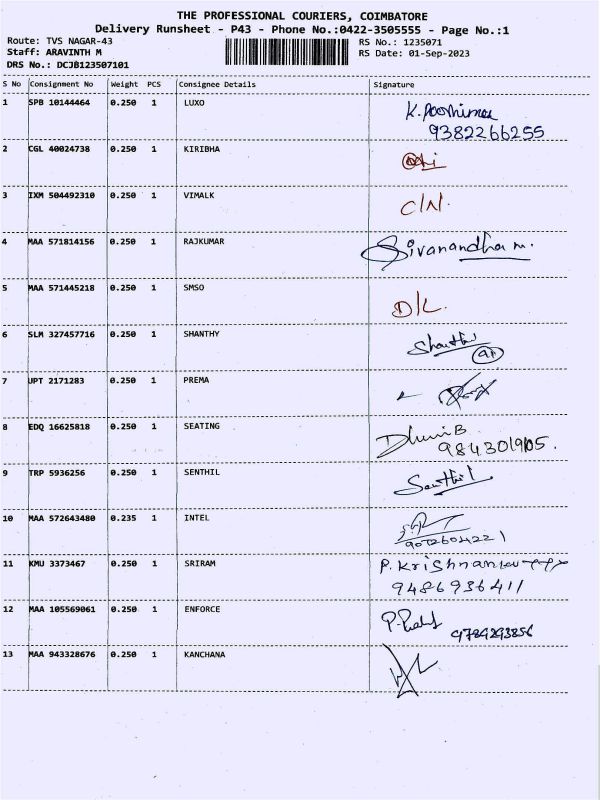 THE PROFESSIONAL COURIERS, COIMBATORE
Delivery Runsheet - P43 - Phone No.:0422-3505555 - Page No.:1
Route: TVS NAGAR-43 RS No.: 1235071
Staff: ARAVINTH M RS Date: 01-Sep-2023
DRS No.: DCJB123507101
S No Consignment No Weight PCS Consignee Details Signature
1 SPB 10144464 0.250 1 LUXO K.
9382266255
2 CGL 40024738 0.250 1 KIRIBHA
3 IXM 504492310 0.250 1 VIMALK C/N.
4 MAA 571814156 0.250 1 RAJKUMAR Sivanandha m.
5 MAA 571445218 0.250 1 SMSO D/L
6 SLM 327457716 0.250 1 SHANTHY Shanthi
7 UPT 2171283 0.250 1 PREMA
8 EDQ 16625818 0.250 1 SEATING
9 TRP 5936256 0.250 1 SENTHIL Senthil
10 MAA 572643480 0.235 1 INTEL
11 KMU 3373467 0.250 1 SRIRAM P.
9486936411
12 MAA 105569061 0.250 1 ENFORCE
9789293856
13 MAA 943328676 0.250 1 KANCHANA